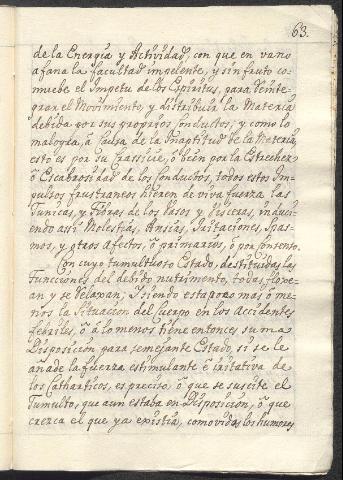 63.
de la Energia y Actividad, con que en vano
afana la facultad impelente, y sin fruto co-
muebe el Impetu de los Espiritus, para Reinte-
grar el Movimiento, y distribuir la Materia
debida por sus proprios Conductos; y como lo
malogra, ô Causa de la Inaptitud de la Materia,
esto es por su Crassicie, ô bien por la Estrechez
ô Escabrosidad de los Conductos, todos estos Im-
pulsos frustraneos hieren de viva fuerza las
Tunicas, y Fibras de los Vasos y Visceras, induci-
endo assi Molestias, Ansias, Iritaciones, Spas-
mos, y otros afectos, ô primarios, ô por Consenso.
Con cuyo tumultuoso Estado, destituidas las
Funcciones del debido nutrimento, todas flojè-
an y se relaxan; I siendo esta poco mas ô me-
nos la Situacion del Cuerpo en los accidentes
Febriles, ô â lo menos tiene entonces suma
Disposicion para semejante Estado, si se le
añade la fuerza estimulante ê iritativa de
los Catharticos, es preciso ô que se suscite el
Tumulto, que aun estaba en Disposicion, ô que
crezca el que ya existia, comovidos los humores